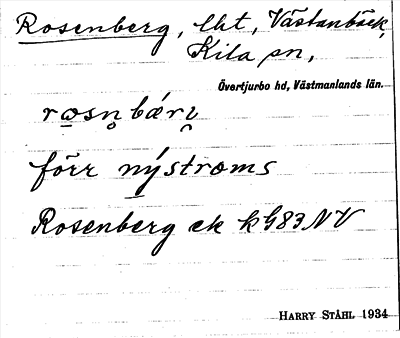 Rosenberg, lht, Västanbäck,
Kila sn,
Övertjurbo hd, Västmanlands län.
rosn̥ bærı̨
förr nýstroms
Rosenberg ek kG83NV
HARRY STÅHL 1934